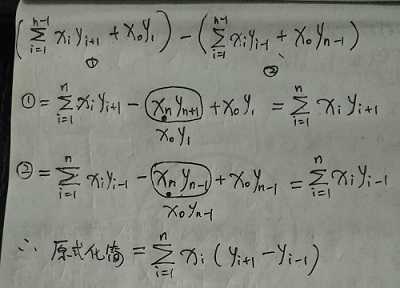 (∑_{i=1}^{n-1} x_i y_{i+1} + x_0 y_1) - (∑_{i=1}^{n-1} x_i y_{i-1} + x_0 y_{n-1})
① ②
① = ∑_{i=1}^{n} x_i y_{i+1} - x_n y_{n+1} + x_0 y_1 = ∑_{i=1}^{n} x_i y_{i+1}
x_0 y_1
② = ∑_{i=1}^{n} x_i y_{i-1} - x_n y_{n-1} + x_0 y_{n-1} = ∑_{i=1}^{n} x_i y_{i-1}
x_0 y_{n-1}
∴ 原式化简 = ∑_{i=1}^{n} x_i (y_{i+1} - y_{i-1})